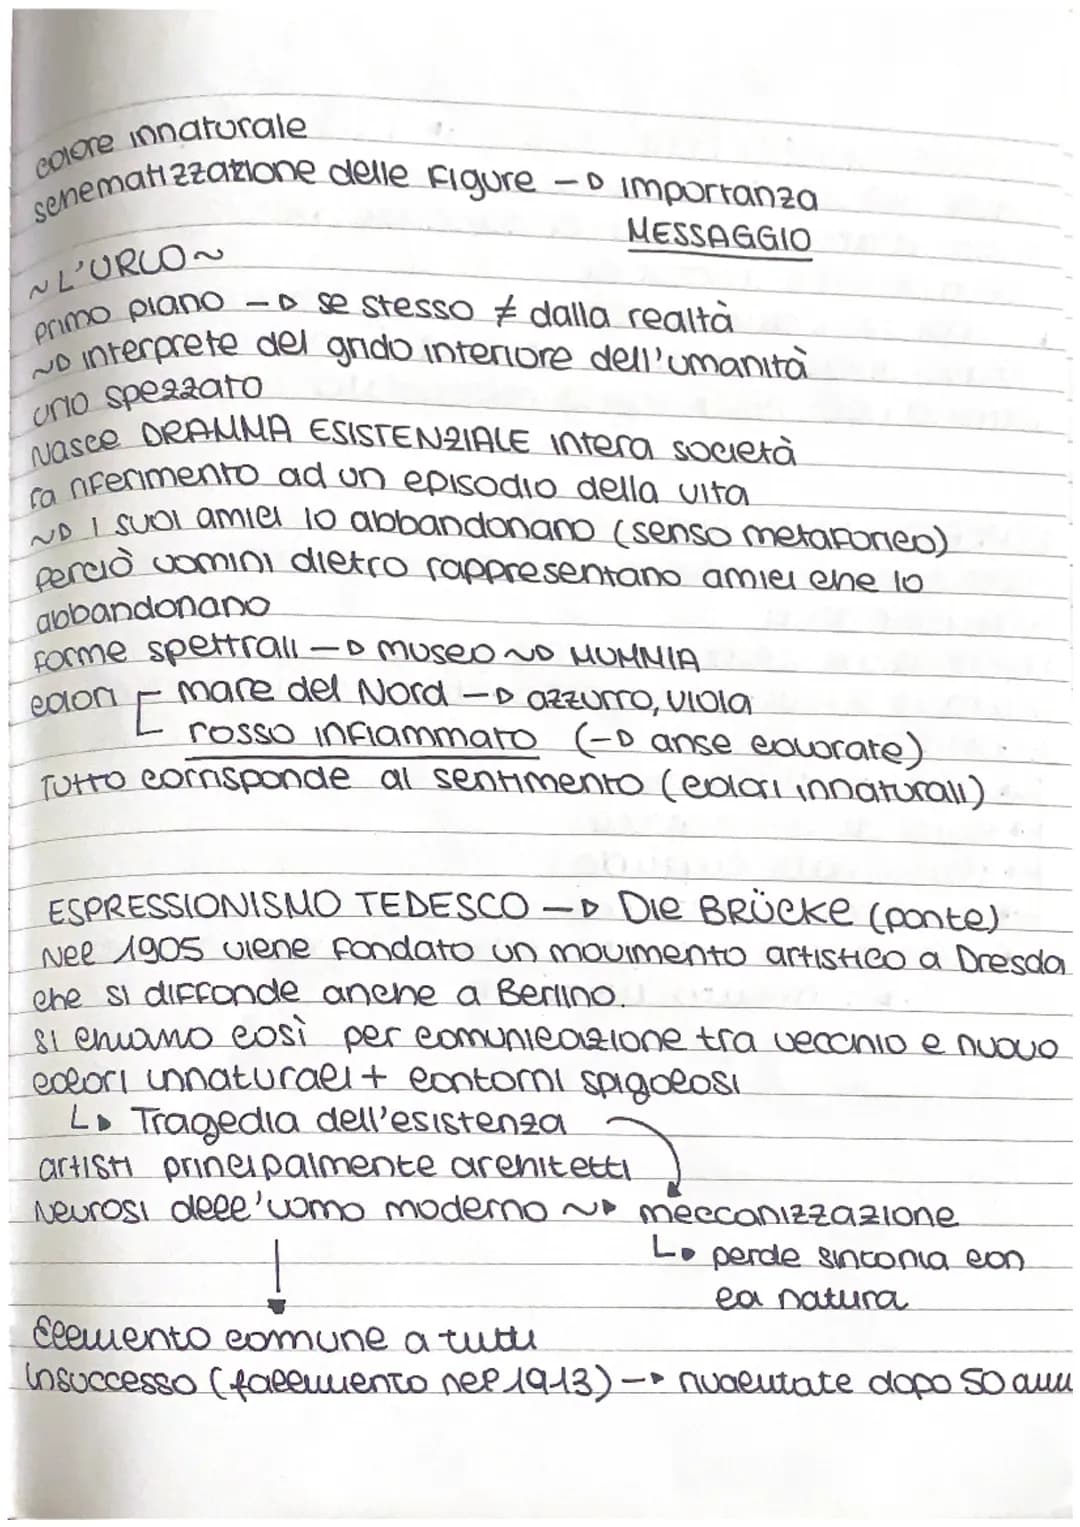 colore innaturale
schematizzazione delle figure → importanza
MESSAGGIO
~ L'URLO ~
primo piano → se stesso ≠ dalla realtà
~> interprete del grido interiore dell'umanità
urlo spezzato
Nasce DRAMMA ESISTENZIALE intera società
fa riferimento ad un episodio della vita
~> i suoi amici lo abbandonano (senso metaforico)
perciò uomini dietro rappresentano amici che lo
abbandonano
forme spettrali → museo ~> MUMMIA
colori mare del Nord → azzurro, viola
rosso infiammato (→ anse colorate)
Tutto corrisponde al sentimento (colori innaturali)
ESPRESSIONISMO TEDESCO → Die BRÜCKE (ponte)
Nel 1905 viene fondato un movimento artistico a Dresda
che si diffonde anche a Berlino.
si chiamano così per comunicazione tra vecchio e nuovo
colori innaturali + contorni spigolosi
↳ Tragedia dell'esistenza
artisti principalmente architetti
Neurosi dell'uomo moderno ~> meccanizzazione
↳ perde sintonia con
la natura
Elemento comune a tutti
Insuccesso (fallimento nel 1913) → rivalutate dopo 50 anni